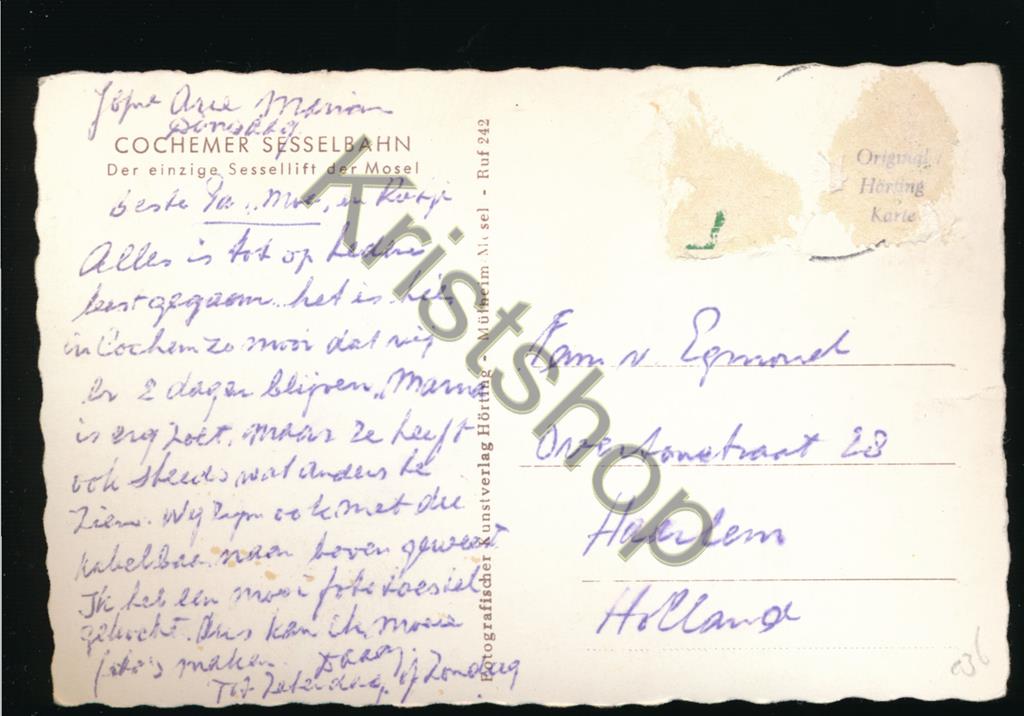 Arie Marian
Donderdag
COCHEMER SESSELBAHN
Der einzige Sessellift der Mosel
beste Pa, Moe, en
Alles is tot op heden
best gegaan. het is hier
in Cochem zo mooi dat wij
er 2 dagen blijven. Marian
is erg zoet, maar ze heeft
ook steeds wat anders te
zien. Wij zijn ook met die
kabelbaan naar boven geweest
Ik heb een mooi fototoestel
gekocht. Dus kan ik mooie
foto's maken. Daag
Tot Zaterdag of Zondag
Fotografischer Kunstverlag Hörting - Mülheim Mosel - Ruf 242
Original
Hörting
Karte
Fam v. Egmond
straat 28
Haarlem
Holland
036
Kristshop